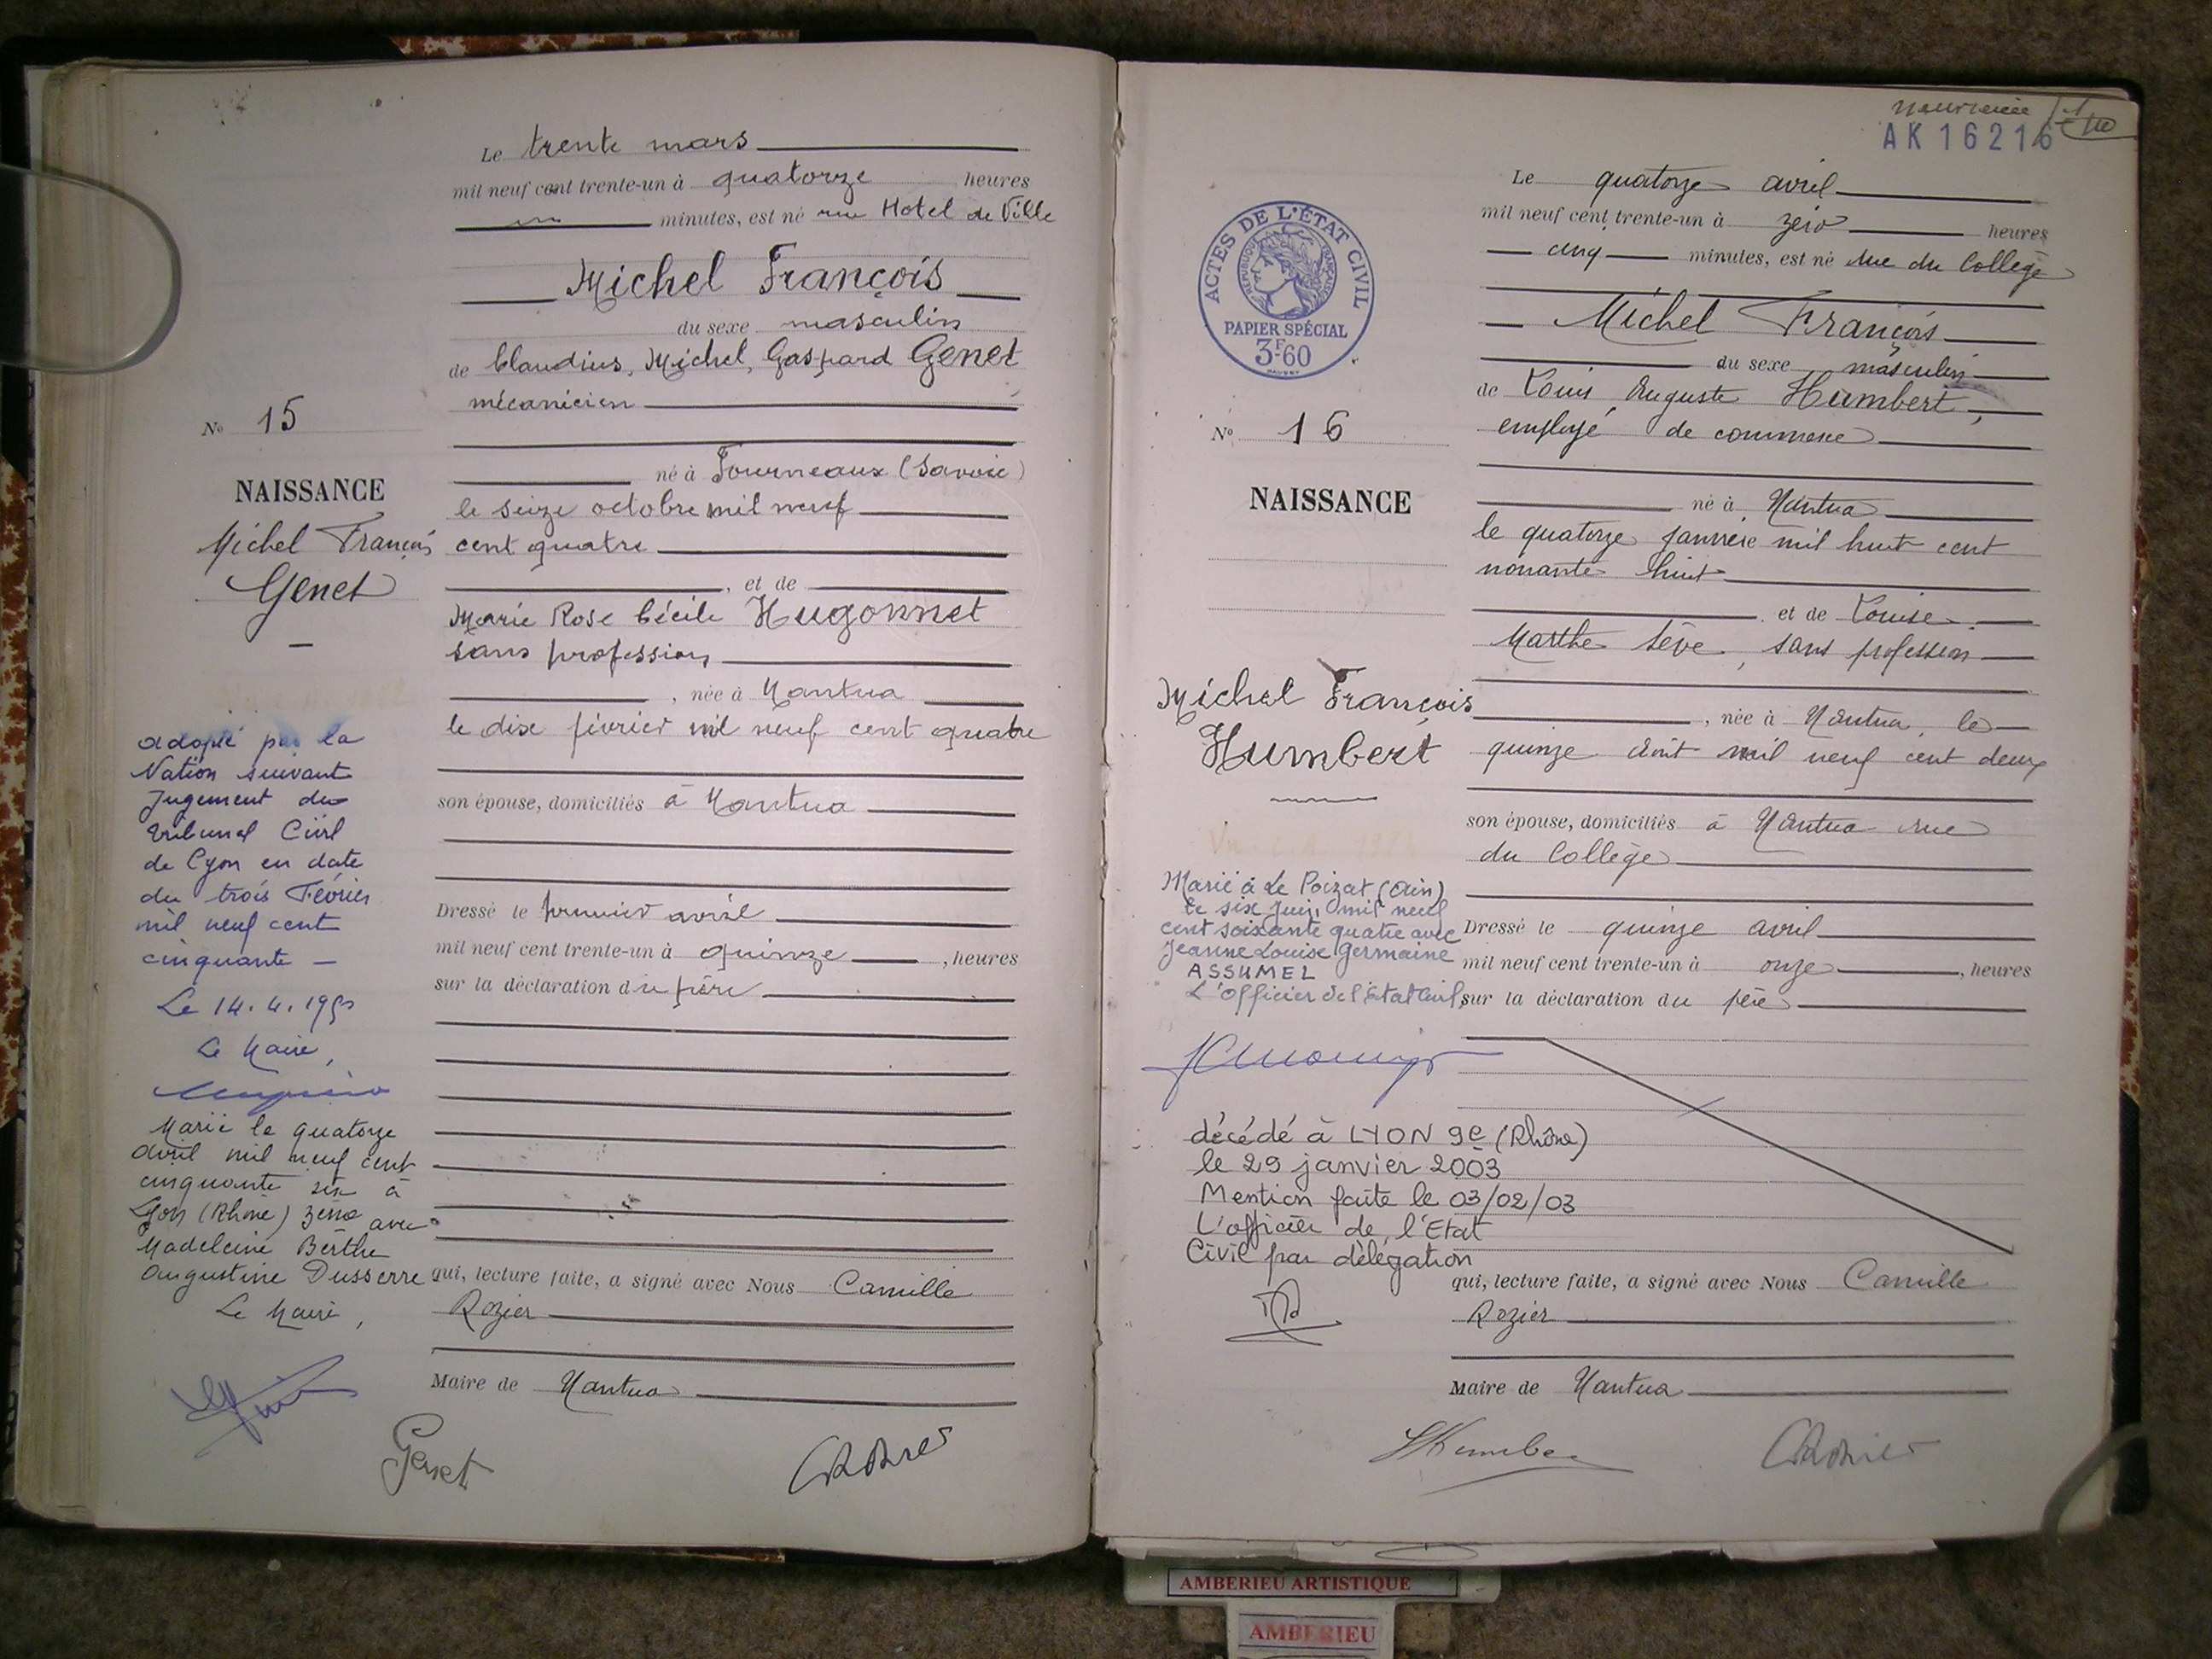 Le trente mars
mil neuf cent trente-un à quatorze heures
minutes, est né rue Hotel de Ville
Michel François
du sexe masculin
de Claudius, Michel, Gaspard Genet
mécanicien
né à Fourneaux (Savoie)
le seize octobre mil neuf
cent quatre
, et de
Marie Rose Cécile Hugonnet
sans profession
, née à Nantua
le dix février mil neuf cent quatre
son épouse, domiciliés à Nantua
Dressé le premier avril
mil neuf cent trente-un à quinze , heures
sur la déclaration du père
qui, lecture faite, a signé avec Nous Camille
Rozier
Maire de Nantua
Genet
No 15
NAISSANCE
Michel François
Genet
adopté par la
Nation suivant
Jugement du
tribunal Civil
de Lyon en date
du trois Février
mil neuf cent
cinquante
Le 14.4.1950
Le Maire,
Marié le quatorze
avril mil neuf cent
cinquante six à
Lyon (Rhône) 3ème avec
Madeleine Berthe
Augustine Dusserre
Le Maire,
AK 16216
Le quatorze avril
mil neuf cent trente-un à zéro heures
cinq minutes, est né rue du Collège
Michel François
du sexe masculin
de Louis Auguste Humbert,
employé de commerce
né à Nantua
le quatorze janvier mil huit cent
nonante huit
et de Louise
Marthe Sève, sans profession
, née à Nantua, le
quinze août mil neuf cent deux
son épouse, domiciliés à Nantua rue
du Collège
Dressé le quinze avril
mil neuf cent trente-un à onze , heures
sur la déclaration du père
qui, lecture faite, a signé avec Nous Camille
Rozier
Maire de Nantua
ACTES DE L'ÉTAT CIVIL
RÉPUBLIQUE FRANÇAISE
PAPIER SPÉCIAL
3F.60
No 16
NAISSANCE
Michel François
Humbert
Marié à Le Poizat (Ain)
le six juin mil neuf
cent soixante quatre avec
Jeanne Louise Germaine
ASSUMEL
L'officier de l'état civil,
décédé à LYON 9e (Rhône)
le 29 janvier 2003
Mention faite le 03/02/03
L'officier de l'Etat
Civil par délégation
AMBERIEU ARTISTIQUE
AMBERIEU